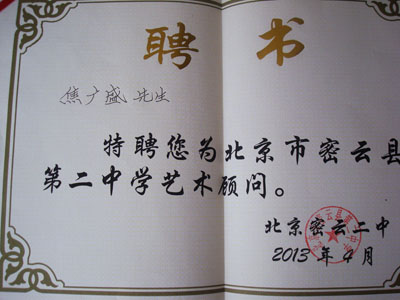 聘书
焦广盛 先生
特聘您为北京市密云县
第二中学艺术顾问。
北京密云二中
2013 年 4 月